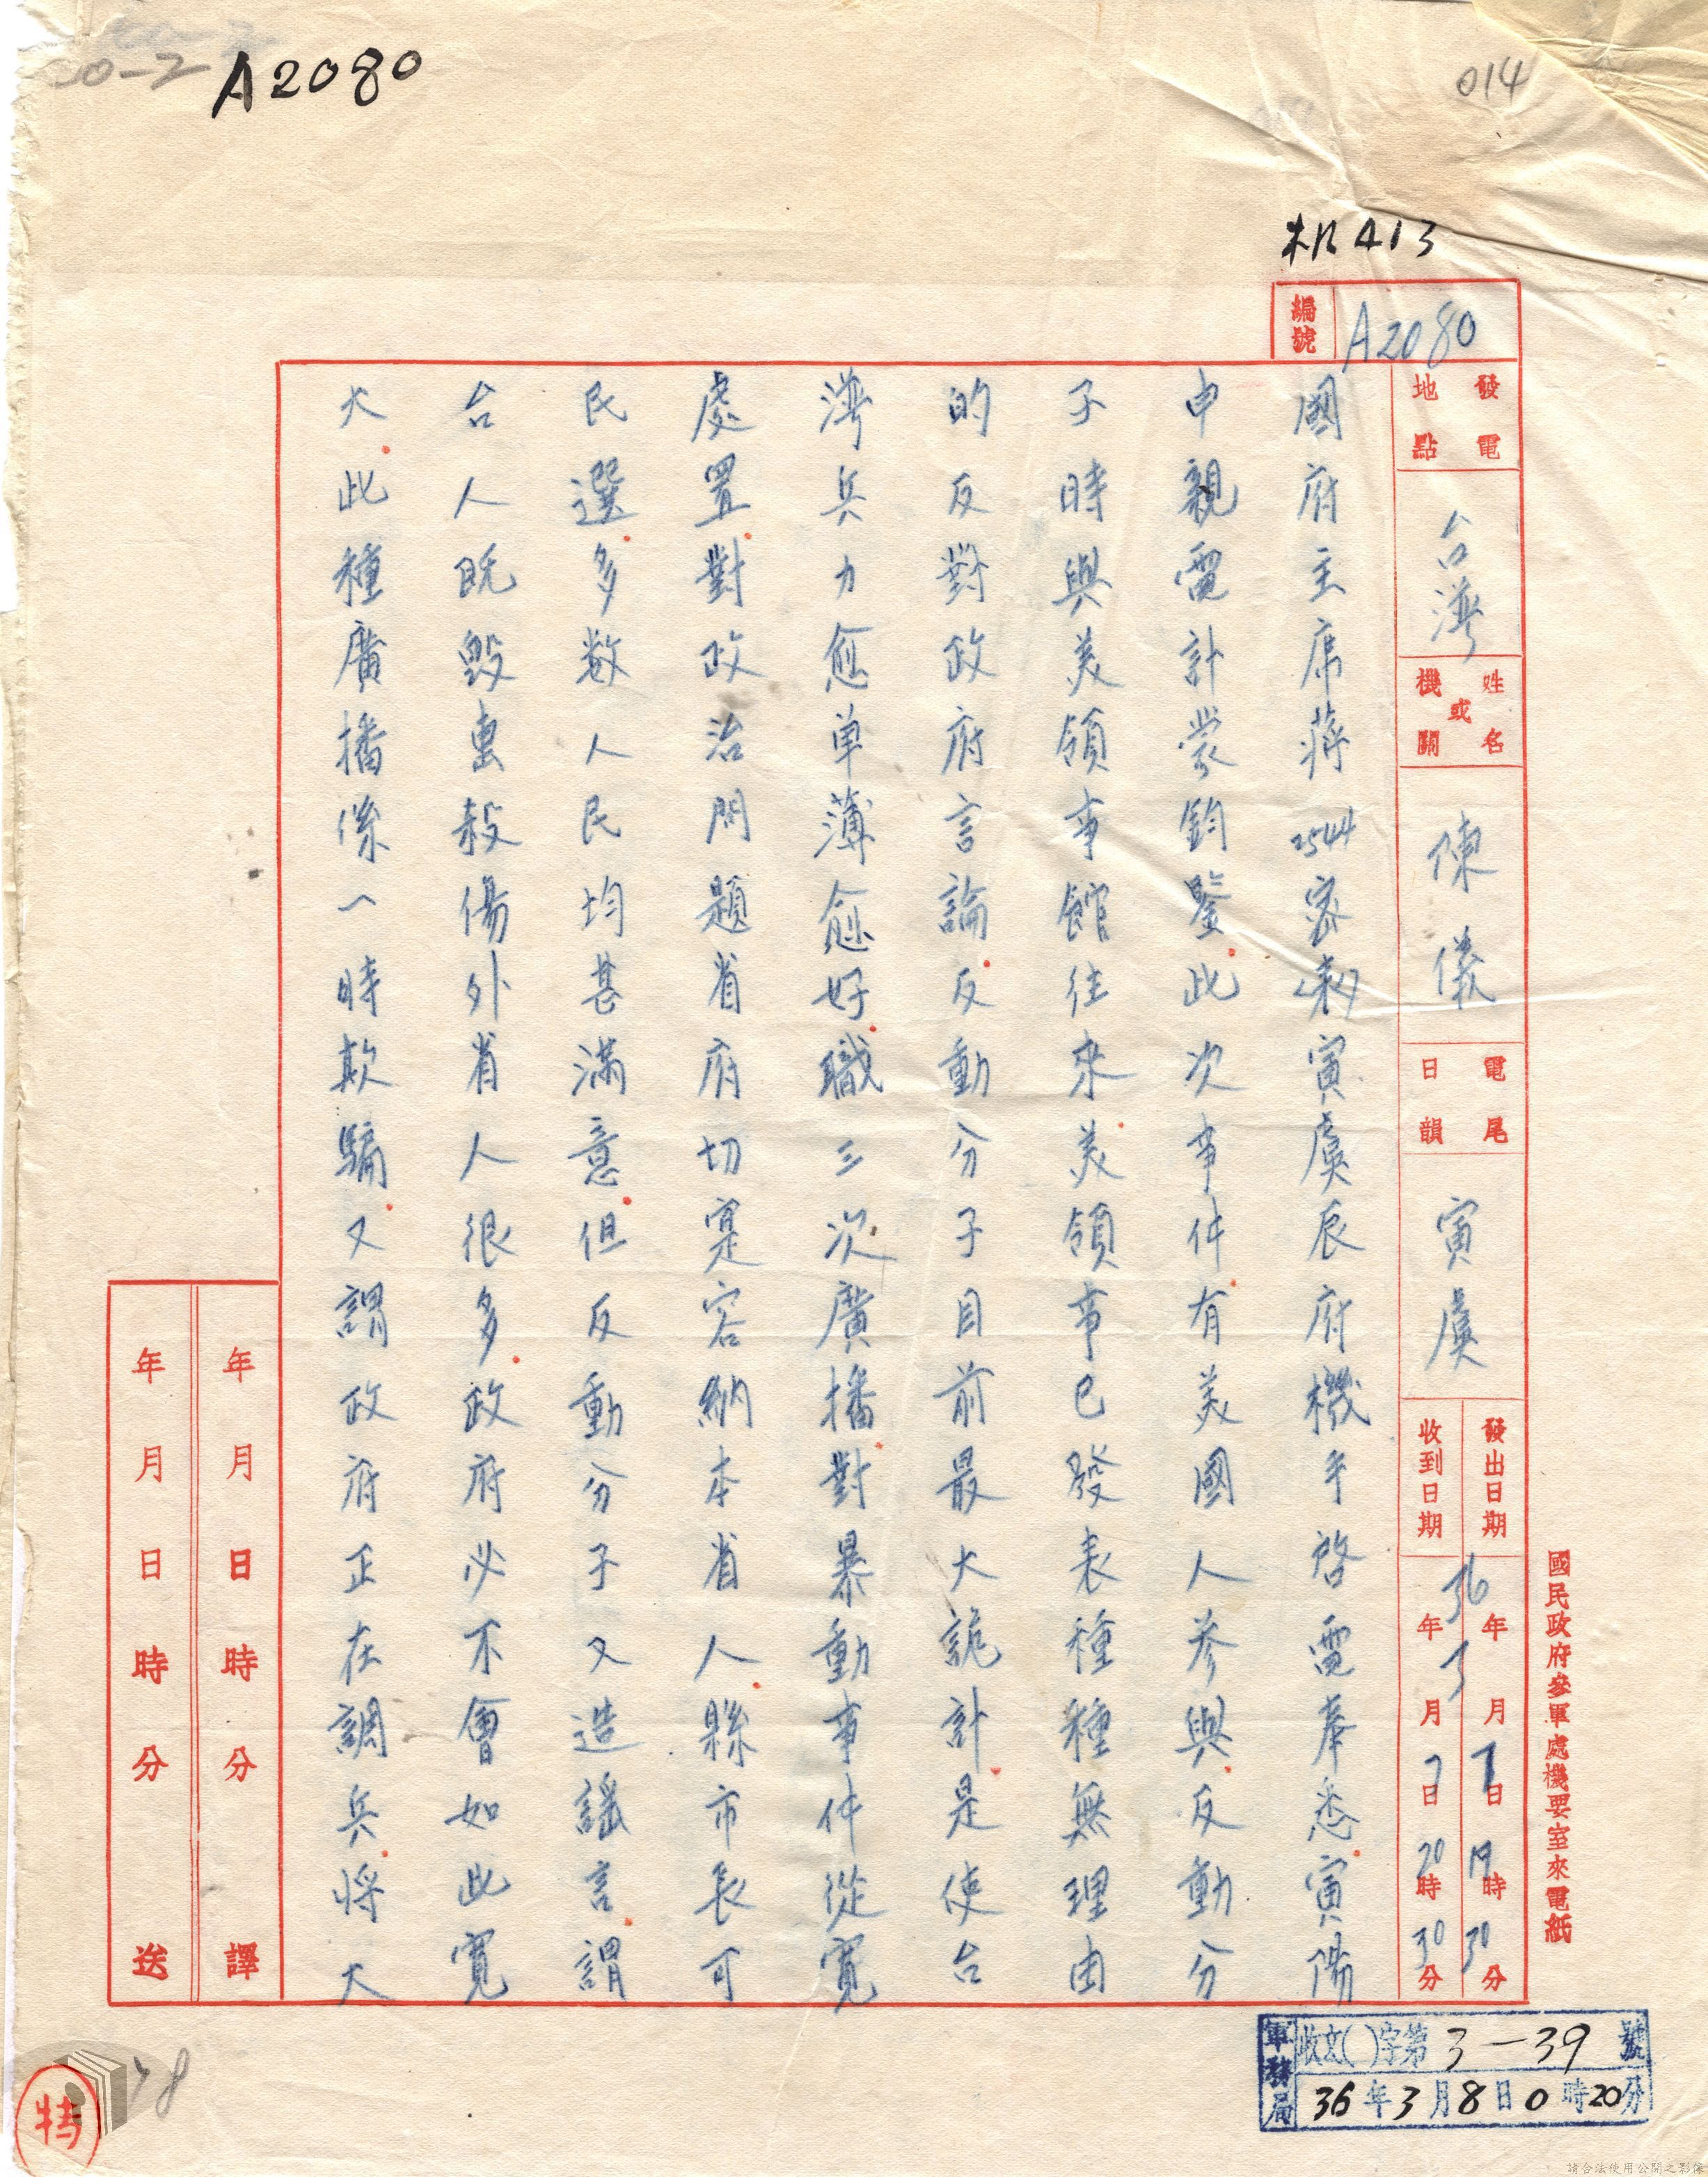 A2080
014
机A413
編號 A2080
國民政府參軍處機要室來電紙
發電地點 台灣
姓名或機關 陳儀
電尾日韻 寅虞
發出日期 36年3月7日19時30分
收到日期 年月7日20時30分
國府主席蔣2544密(表)寅虞辰府機手啓電奉悉寅陽
申親電計蒙鈞鑒此次事件有美國人參與反動分
子時與美領事館往來美領事已發表種種無理由
的反對政府言論反動分子目前最大詭計是使台
灣兵力愈单薄愈好職三次廣播對暴動事件從寬
處置對政治問題省府切寔容納本省人縣市長可
民選多数人民均甚滿意但反動分子又造謠言謂
台人既毀壞殺傷外省人很多政府必不會如此寬
大此種廣播係一時欺騙又謂政府正在調兵將大
年月日時分譯
年月日時分送
軍務局 收文( )字第3-39號
36年3月8日0時20分
特
請合法使用公開之影像